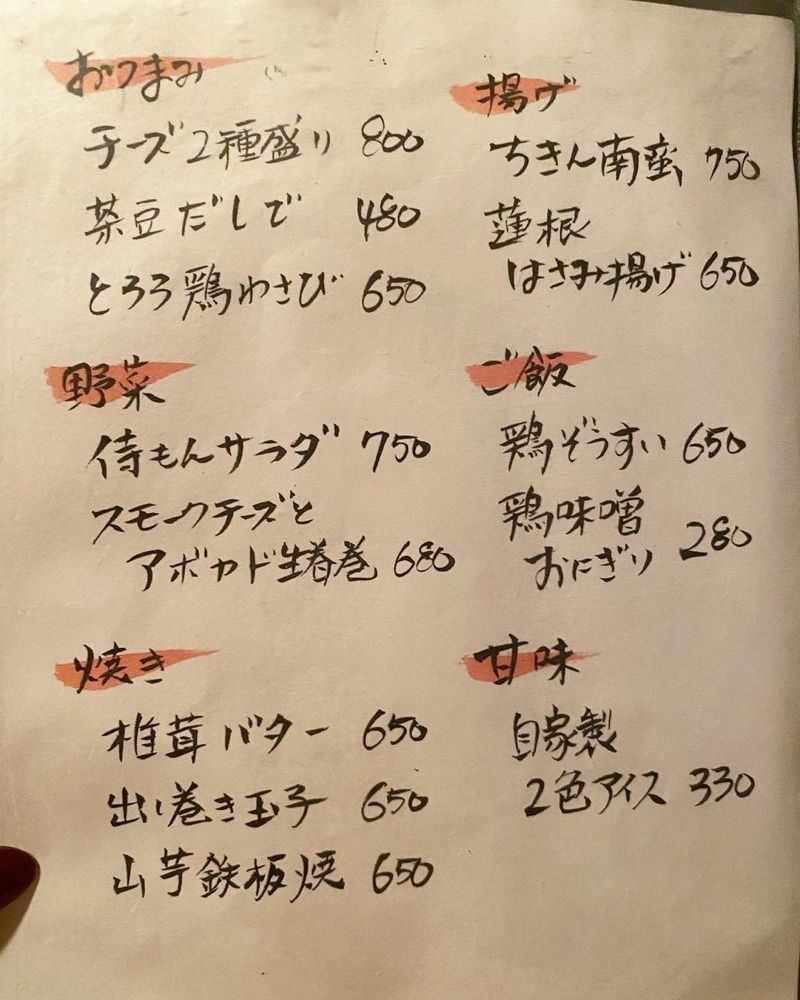 おつまみ
チーズ2種盛り 800
茶豆だしで 480
とろろ鶏わさび 650
野菜
侍もんサラダ 750
スモークチーズと
アボカド生春巻 680
焼き
椎茸バター 650
出し巻き玉子 650
山芋鉄板焼 650
揚げ
ちきん南蛮 750
蓮根
はさみ揚げ 650
ご飯
鶏ぞうすい 650
鶏味噌
おにぎり 280
甘味
自家製
2色アイス 330